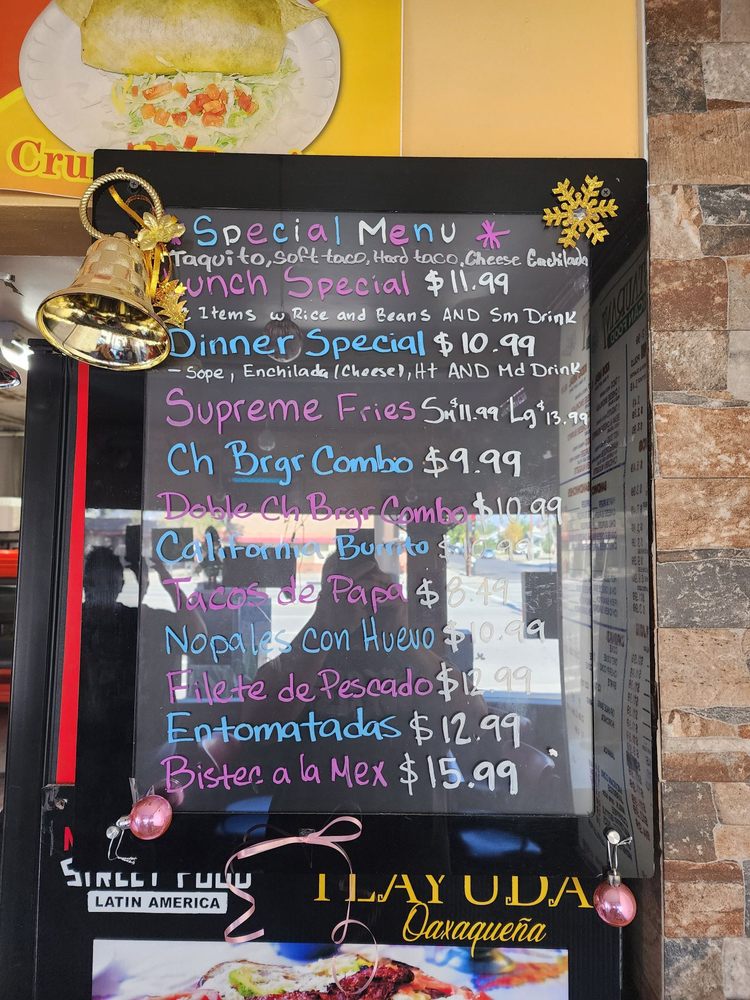 Special Menu
Taquito, Soft taco, Hard taco, Cheese Enchilada
unch Special $11.99
Items w Rice and Beans AND Sm Drink
Dinner Special $10.99
- Sope, Enchilada (Cheese), Ht AND Md Drink
Supreme Fries Sm $11.99 Lg $13.99
Ch Brgr Combo $9.99
Doble Ch Brgr Combo $10.99
California Burrito $10.99
Tacos de Papa $8.49
Nopales con Huevo $10.99
Filete de Pescado $12.99
Entomatadas $12.99
Bistec a la Mex $15.99
STREET FOOD
LATIN AMERICA
TLAYUDA
Oaxaqueña